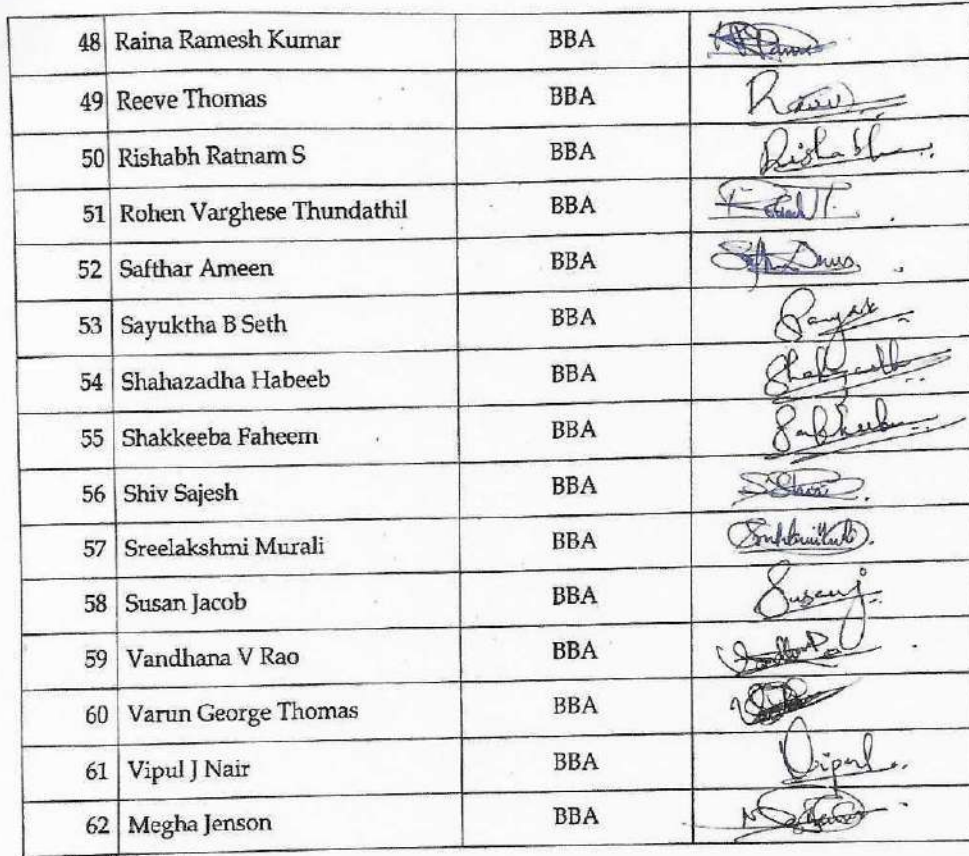 48 Raina Ramesh Kumar BBA
49 Reeve Thomas BBA
50 Rishabh Ratnam S BBA Rishabh
51 Rohen Varghese Thundathil BBA
52 Safthar Ameen BBA
53 Sayuktha B Seth BBA
54 Shahazadha Habeeb BBA
55 Shakkeeba Faheem BBA
56 Shiv Sajesh BBA
57 Sreelakshmi Murali BBA
58 Susan Jacob BBA Susan J
59 Vandhana V Rao BBA
60 Varun George Thomas BBA
61 Vipul J Nair BBA Vipul
62 Megha Jenson BBA